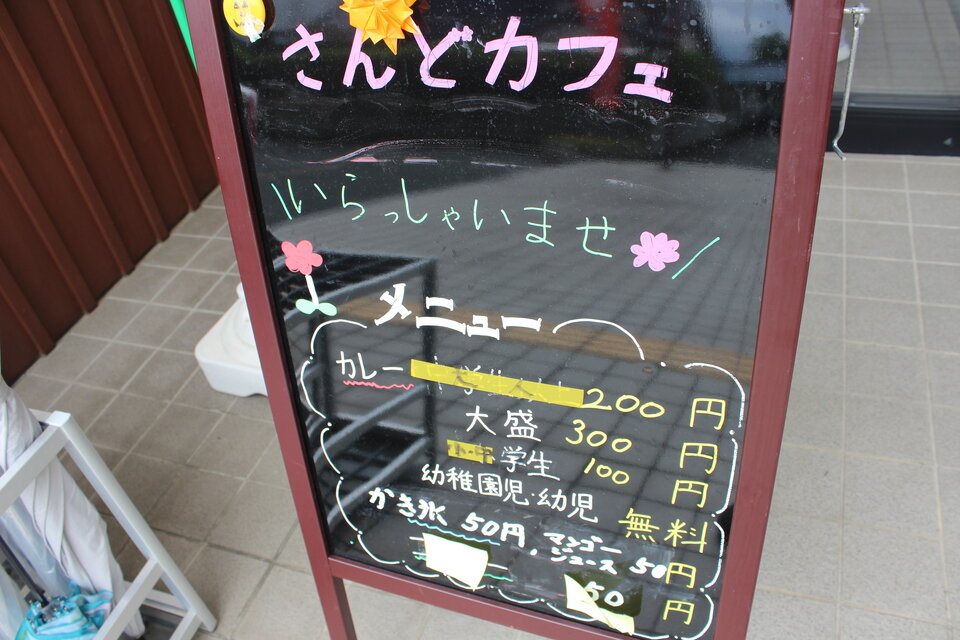 さんどカフェ
いらっしゃいませ
メニュー
カレー 200円
大盛 300円
学生 100円
幼稚園児・幼児 無料
かき氷 50円、マンゴージュース 50円
50円